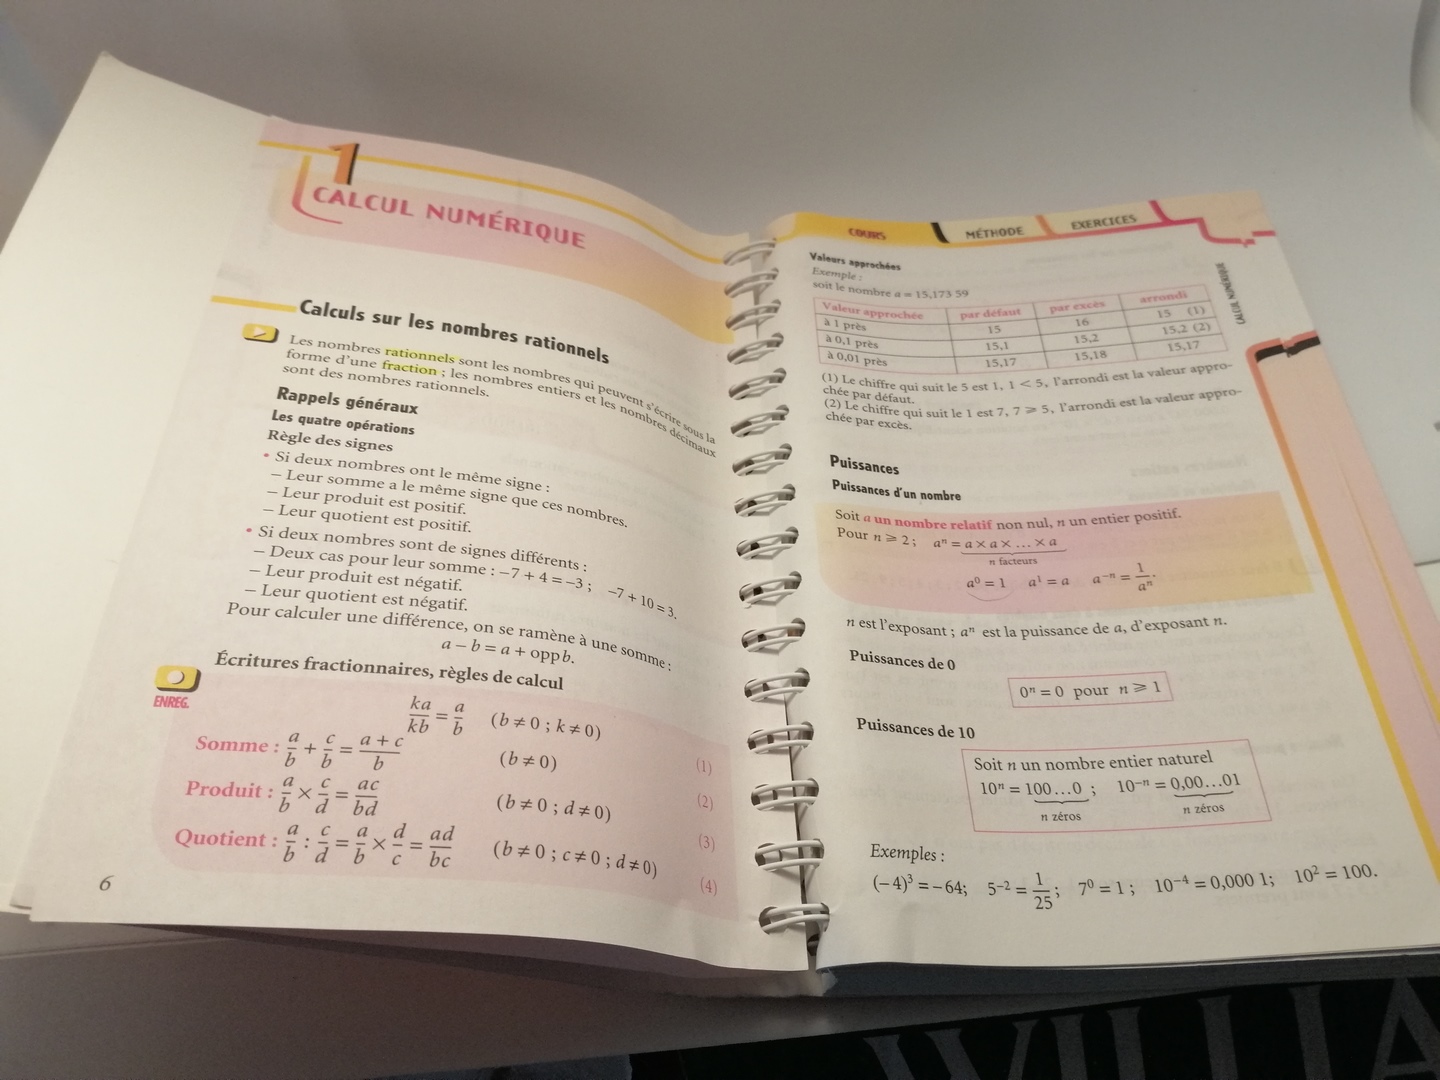 1
CALCUL NUMÉRIQUE
Calculs sur les nombres rationnels
Les nombres rationnels sont les nombres qui peuvent s'écrire sous la
forme d'une fraction ; les nombres entiers et les nombres décimaux
sont des nombres rationnels.
Rappels généraux
Les quatre opérations
Règle des signes
• Si deux nombres ont le même signe :
– Leur somme a le même signe que ces nombres.
– Leur produit est positif.
– Leur quotient est positif.
• Si deux nombres sont de signes différents :
– Deux cas pour leur somme : −7 + 4 = −3 ; −7 + 10 = 3.
– Leur produit est négatif.
– Leur quotient est négatif.
Pour calculer une différence, on se ramène à une somme :
a − b = a + opp b.
Écritures fractionnaires, règles de calcul
ENREG.
ka/kb = a/b (b ≠ 0 ; k ≠ 0) (1)
Somme : a/b + c/b = (a + c)/b (b ≠ 0) (2)
Produit : a/b × c/d = ac/bd (b ≠ 0 ; d ≠ 0) (3)
Quotient : a/b : c/d = a/b × d/c = ad/bc (b ≠ 0 ; c ≠ 0 ; d ≠ 0) (4)
6
COURS MÉTHODE EXERCICES
CALCUL NUMÉRIQUE
Valeurs approchées
Exemple :
soit le nombre a = 15,173 59
Valeur approchée par défaut par excès arrondi
à 1 près 15 16 15 (1)
à 0,1 près 15,1 15,2 15,2 (2)
à 0,01 près 15,17 15,18 15,17
(1) Le chiffre qui suit le 5 est 1, 1 < 5, l'arrondi est la valeur appro-
chée par défaut.
(2) Le chiffre qui suit le 1 est 7, 7 ⩾ 5, l'arrondi est la valeur appro-
chée par excès.
Puissances
Puissances d'un nombre
Soit a un nombre relatif non nul, n un entier positif.
Pour n ⩾ 2 ; aⁿ = a × a × … × a
n facteurs
a⁰ = 1 a¹ = a a⁻ⁿ = 1/aⁿ.
n est l'exposant ; aⁿ est la puissance de a, d'exposant n.
Puissances de 0
0ⁿ = 0 pour n ⩾ 1
Puissances de 10
Soit n un nombre entier naturel
10ⁿ = 100…0 ; 10⁻ⁿ = 0,00…01
n zéros n zéros
Exemples :
(−4)³ = −64; 5⁻² = 1/25; 7⁰ = 1 ; 10⁻⁴ = 0,000 1; 10² = 100.
WILLIA